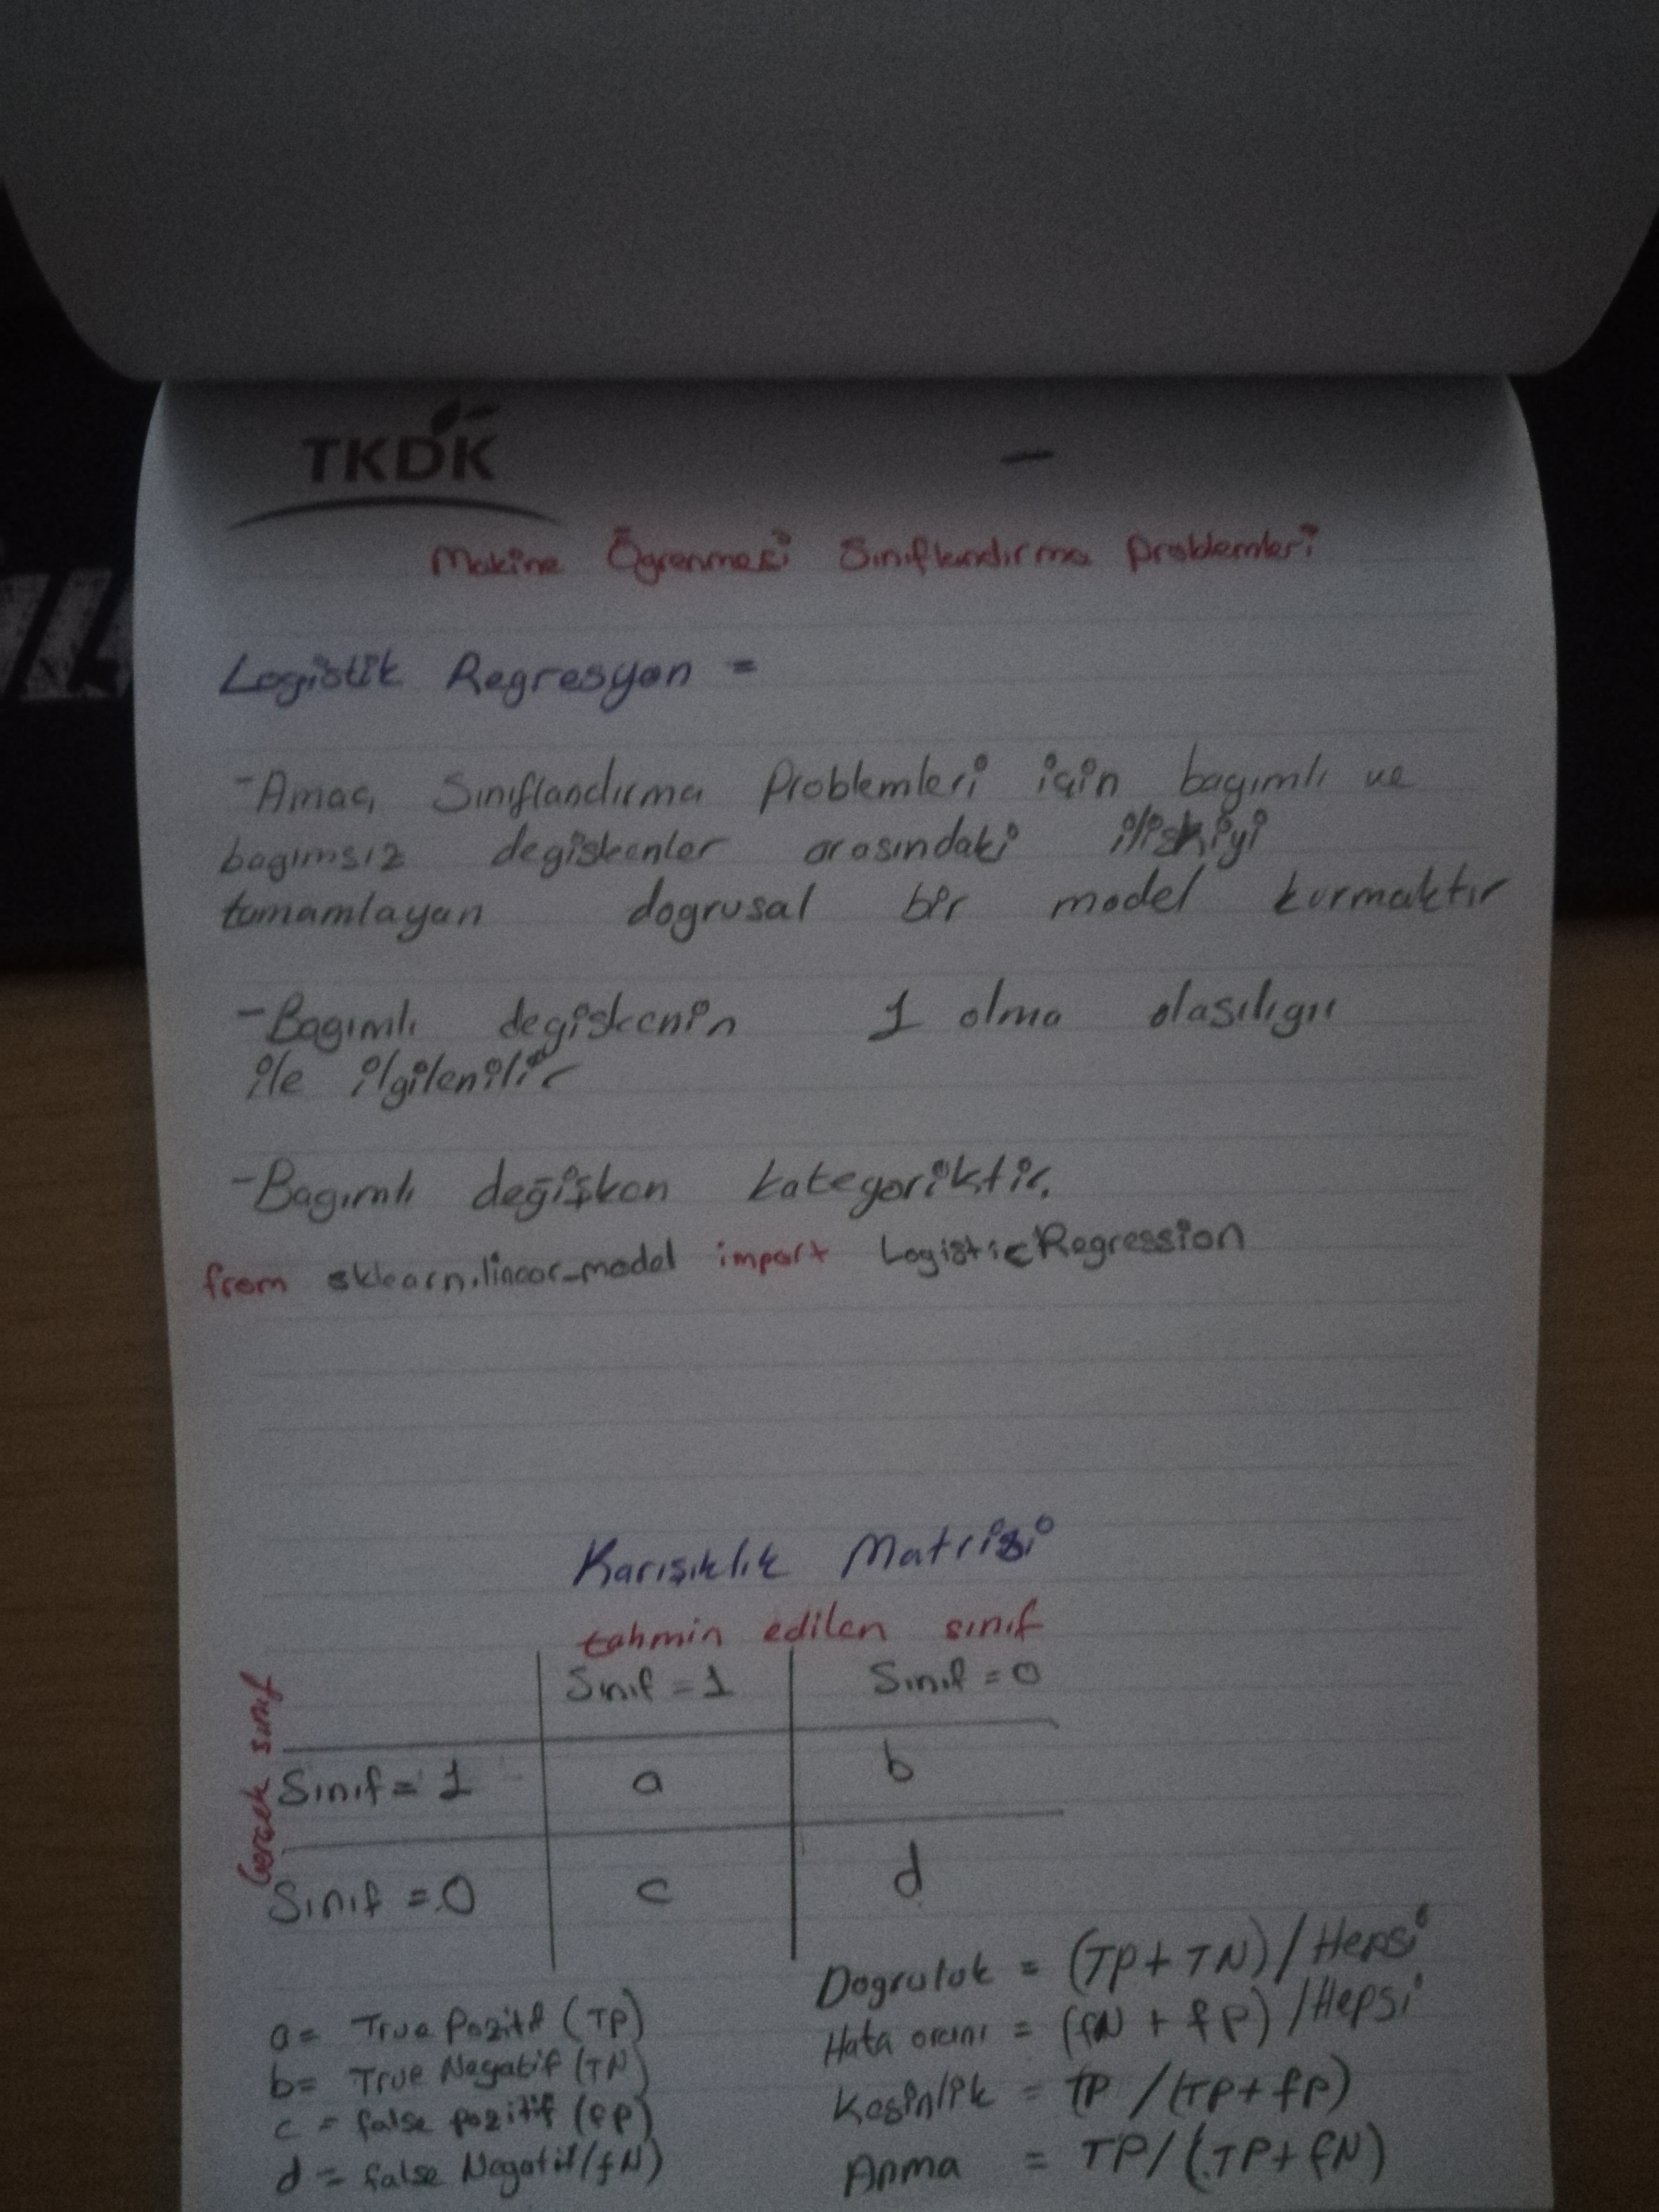 TKDK
Makine Ögrenmesi Sınıflandırma Problemleri
Logistik Regresyon =
-Amaç Sınıflandırma Problemleri için bagımlı ve
bagımsız degiskenler arasındaki iliskiyi
tamamlayan dogrusal bir model kurmaktır
-Bagımlı degiskenin 1 olma olasılıgıı
ile ilgilenilir
-Bagımlı değişken kategoriktir.
from sklearn.linear_model import LogisticRegression
Karışıklık Matrisi
tahmin edilen sınıf
Gerçek sınıf
Sınıf = 1 Sınıf = 0
Sınıf = 1 a b
Sınıf = 0 c d
a = True Pozitif (TP)
b = True Negatif (TN)
c = false pozitif (fp)
d = false Negatif (fN)
Dogruluk = (TP + TN) / Hepsi
Hata oranı = (fN + fp) / Hepsi
Kesinlik = TP / (TP + fp)
Anma = TP / (TP + fN)